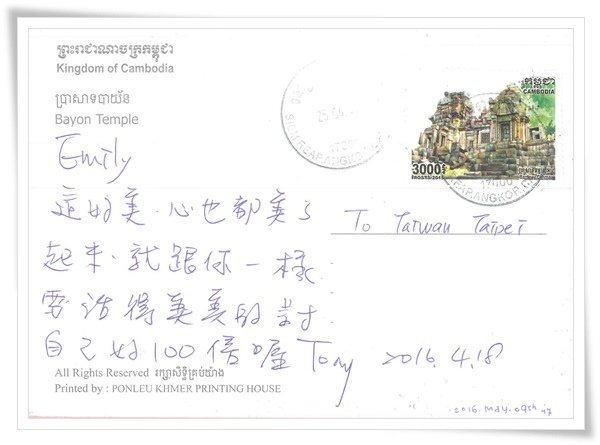 ព្រះរាជាណាចក្រកម្ពុជា
Kingdom of Cambodia
ប្រាសាទបាយ័ន
Bayon Temple
កម្ពុជា
CAMBODIA
3000៛
SIEM REAP ANGKOR
17000
Emily
這好美、心也都美了
To Taiwan Taipei
起來、就跟你一樣
要活得美美的、對
自己好100倍喔 Tony 2016.4.18
All Rights Reserved រក្សាសិទ្ធិគ្រប់យ៉ាង
Printed by : PONLEU KHMER PRINTING HOUSE
2016. May. 09th